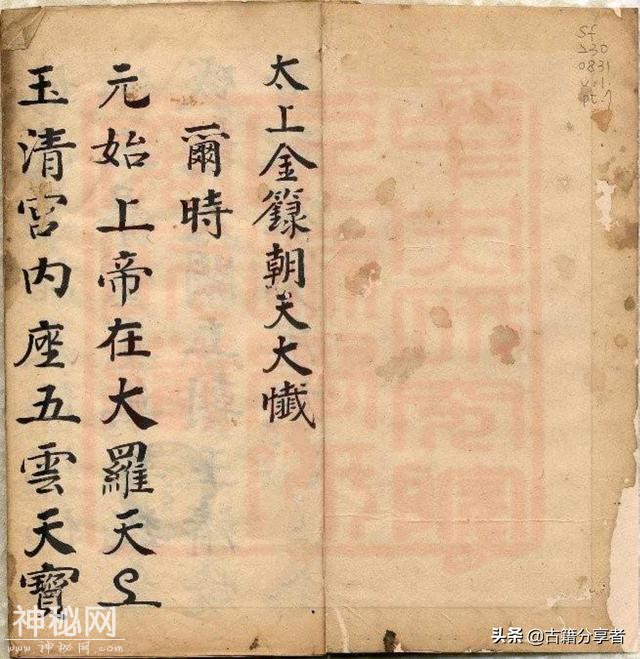 太上金籙朝天大懴
爾時
元始上帝在大羅天上
玉清宮内座五雲天寶
Sf
230
0831
v.1
pt.7
神秘网
WWW.神秘网.COM
头条 @古籍分享者